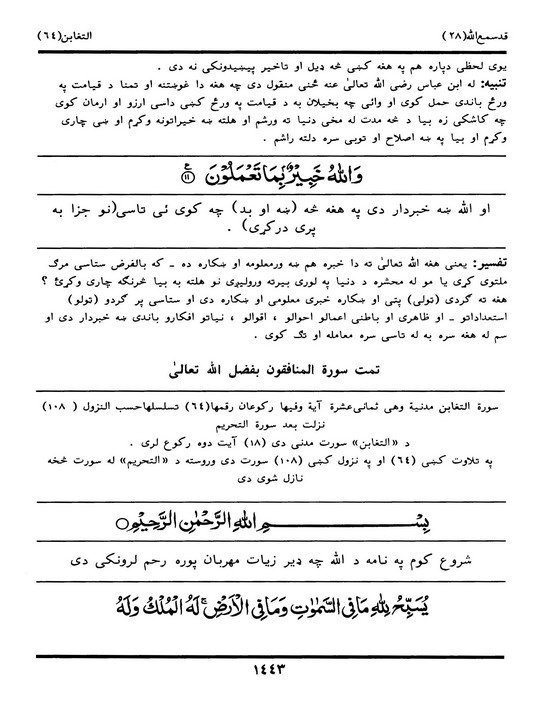 قدسمع‌الله(۲۸)
التغابن(۶۴)
يوی لحظی دپاره هم په هغه کښی څه ډيل او تاخير پيښيدونکی نه دی .
تنبيه: له ابن عباس رضی الله تعالیٰ عنه څخنی منقول دی چه هغه دا غوښتنه او تمنا د قيامت په
ورځ باندی حمل کوی او وائی چه بخيلان به د قيامت په ورځ کښی داسی ارزو او ارمان کوی
چه کاشکی زه بيا د څه مدت له مخی دنيا ته ورشم او هلته ښه خيراتونه وکړم او ښی چاری
وکړم او بيا په ښه اصلاح او توبی سره دلته راشم .
وَاللهُ خَبِيرٌۢ بِمَا تَعْمَلُوْنَ ۝۱۱
او الله ښه خبردار دی په هغه څه (ښه او بد) چه کوی ئی تاسی(نو جزا به
پری درکړی) .
تفسير: يعنی هغه الله تعالیٰ ته دا خبره هم ښه ورمعلومه او ښکاره ده ـ که بالفرض ستاسی مرګ
ملتوی کړی يا مو له محشره د دنيا په لوری بيرته وروليږی نو هلته به بيا څرنګه چاری وکړئ ؟
هغه ته ګردی (تولی) پتی او ښکاره خبری معلومی او ښکاره دی او ستاسی پر ګردو (تولو)
استعداداتو ـ او ظاهری او باطنی اعمالو احوالو ، اقوالو ، نياتو افکارو باندی ښه خبردار دی او
سم له هغه سره به له تاسی سره معامله او تګ کوی .
تمت سورة المنافقون بفضل الله تعالیٰ
سورة التغابن مدنية وهی ثمانی‌عشرة آية وفيها رکوعان رقمها(۶۴) تسلسلهاحسب النزول ( ۱۰۸)
نزلت بعد سورة التحريم
د «التغابن» سورت مدنی دی (۱۸) آيت دوه رکوع لری .
په تلاوت کښی (۶۴) او په نزول کښی (۱۰۸) سورت دی وروسته د «التحريم» له سورت څخه
نازل شوی دی
بِسْــــــمِ اللهِ الرَّحْمٰنِ الرَّحِيْمِ ۝
شروع کوم په نامه د الله چه ډير زيات مهربان پوره رحم لرونکی دی
يُسَبِّحُ لِلّٰهِ مَا فِی السَّمٰوٰتِ وَمَا فِی الْاَرْضِ ۚ لَهُ الْمُلْكُ وَلَهُ
۱۴۴۳